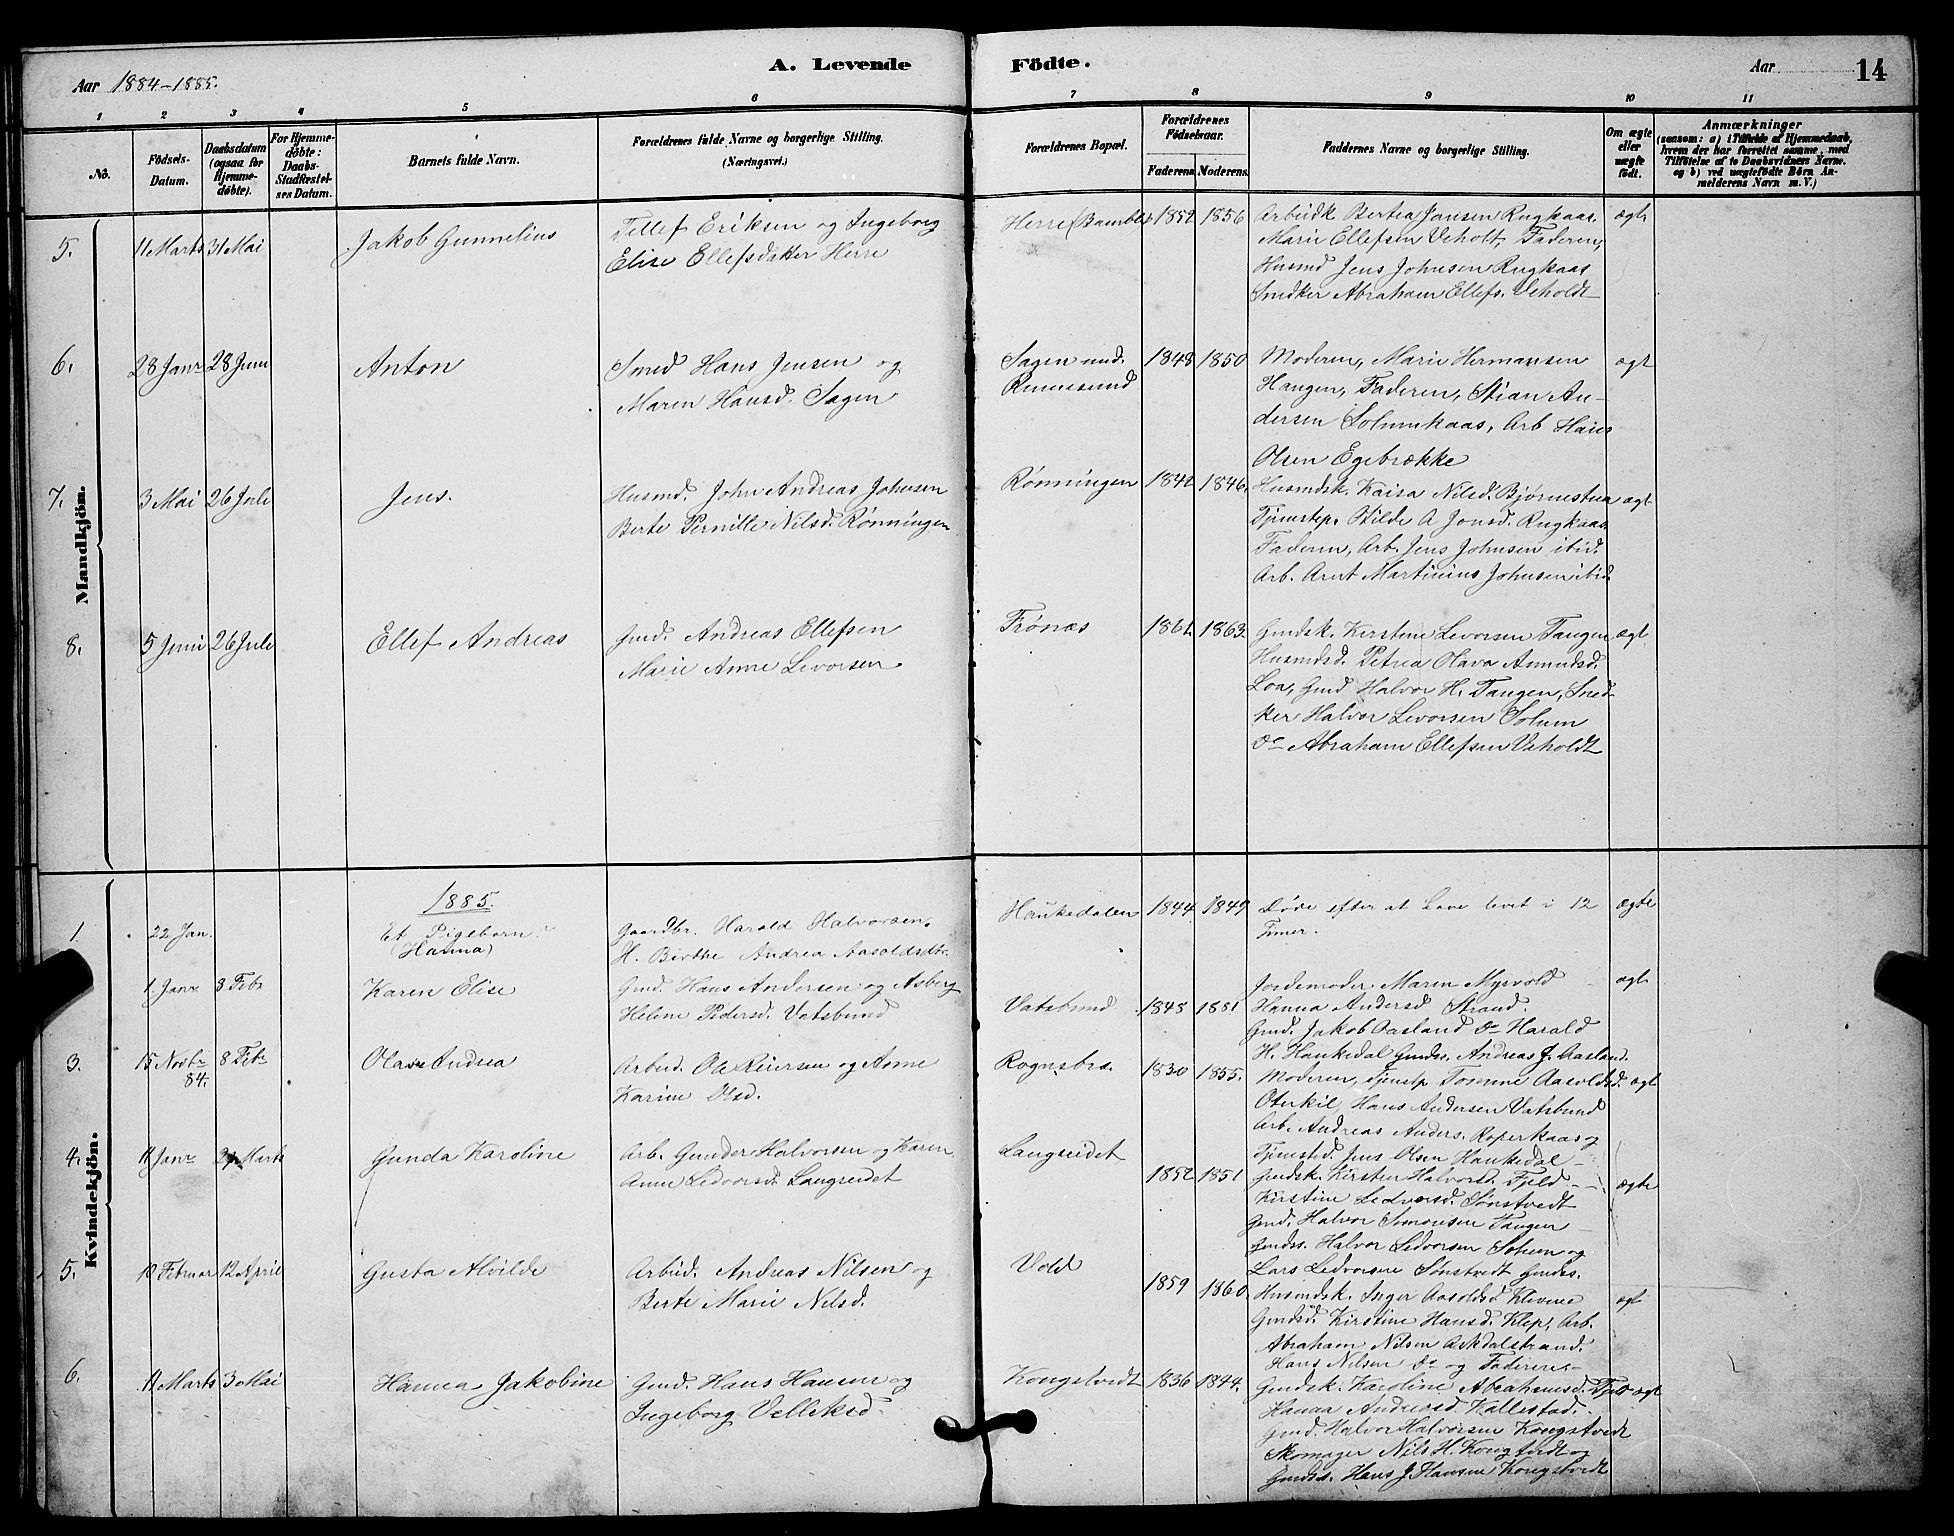 Aar 1884-1885.
A. Levende
Födte.
Aar
14
1 2 3 4 5 6 7 8 9 10 11
No.
Födsels-Datum.
Daabsdatum (ogsaa for Hjemme-döbte).
For Hjemme-döbte: Daabs-Stadfæstel-ses Datum.
Barnets fulde Navn.
Forældrenes fulde Navne og borgerlige Stilling. (Næringsvei.)
Forældrenes Bopæl.
Forældrenes Födselsaar.
Faderens.
Moderens.
Faddernes Navne og borgerlige Stilling.
Om ægte eller uægte födt.
Anmærkninger
(saasom: a) i Tilfælde af Hjemmedaab, hvem der har forrettet samme, med Tilföielse af to Daabsvidners Navne. og b) ved uægtefödte Börn Anmelderens Navn m. V.)
Mandkjön.
5. 11 Marts 31 Mai Jakob Gunnelius
Tellef Eriksen og Ingeborg
Elise Ellefsdatter Herre
Herre (Bamble) 1852 1856
Arbeidk Bertea Jansen Rugkaas. ægt
Marie Ellefsen Veholt, Faderen,
Husmd Jens Johnsen Rugkaas
Snedker Abraham Ellefs. Veholdt
6. 28 Janr 28 Juni Anton
Smed Hans Jensen og
Maren Hansd. Sagen
Sagen und. 1848 1850
Moderen, Marie Hermansen ægt
Haugen, Faderen, Stian An-
dersen Solumkaas, Arb Hans
Olsen Egebrække
7. 3 Mai 26 Juli Jens.
Husmd. John Andreas Johnsen
Berte Pernille Nilsd. Rønningen
Rønningen 1842 1846.
Husmdsk. Kaisa Nilsd. Bjørnestua ægt
Tjenstep. Hilde A Jonsd. Rugkaas
Faderen, Arb. Jens Johnsen ibid.
Arb. Arnt Martinius Johnsen ibid.
8. 5 Juni 26 Juli Ellef Andreas
Gmd. Andreas Ellefsen
Marie Anne Levorsen
Frønæs 1861. 1863.
Gmdsk. Kirstine Levorsen Tangen ægt
Husmdsd. Petrea Olava Amundsd.
Loa, Gmd Halvor H. Tangen, Sned-
ker Halvor Levorsen Solum
do Abraham Ellefsen Veholdt
Kvindekjön.
1885.
1. 22 Jan. Et Pigebarn
(Hanna)
Gaardbr. Harald Halvorsen.
H. Birthe Andrea Aasoldsdtr.
Haukedalen 1844 1849
Døde efter at have levet i 12 ægte
Timer.
1 Janr 8 Febr Karen Elise
Gmd. Hans Andersen og Asberg
Helene Pedersd. Vatsbund
Vatsbund 1848 1851
Jordemoder Maren Myrvold ægt
Hanna Andersd Strand.
Gmd. Jakob Aasland do Harald
H. Haukedal Gmdss. Andreas J. Aasland.
3. 15 Novbr 84. 8 Febr Olava Andrea
Arbeid. Ole Reiersen og Anne
Karine Olsd.
Rognsbra. 1830 1855.
Moderen, Tjenstp Tomine Aasoldsd. ægt
Oterkil, Hans Andersen Vatsbund
Arb. Andreas Anders. Roperkaas og
Tjenstd. Jens Olsen Haukedal
4. 11 Janr Marts Gunda Karoline
Arb. Gunder Halvorsen og Karen
Anne Ledvorsd. Langseidet
Langseidet 1852 1851
Gmdsk. Kirsten Halvorsd. Fjeld ægte
Kirstine Ledvorsd. Sønstvedt
Gmd. Halvor Simonsen Tangen
Gmdss. Halvor Ledvorsen Solum og
Lars Ledvorsen Sønstvedt Gmdss.
5. 10 Februar 12 April Gusta Alvilde
Arbeid. Andreas Nilsen og
Berte Marie Nilsd.
Vold 1859 1860.
Husmdsk. Inger Aasoldsd Klevene ægt
Gmdsd. Kirstine Hansd. Klep, Arb.
Abraham Nilsen Askdalstrand.
Hans Nilsen do og Faderen
6. 11 Marts 3 Mai Hanna Jakobine
Gmd. Hans Hansen og
Ingeborg Velleksd.
Kongstvedt 1836 1844.
Gmdsk. Karoline Abrahamsd. Fjeld ægt
Hanna Andersd Kallestad.
Gmd. Halvor Halvorsen Kongstvedt
Skomager Nils H. Kongstvedt og
Gmdss. Hans J. Hansen Kongstvedt